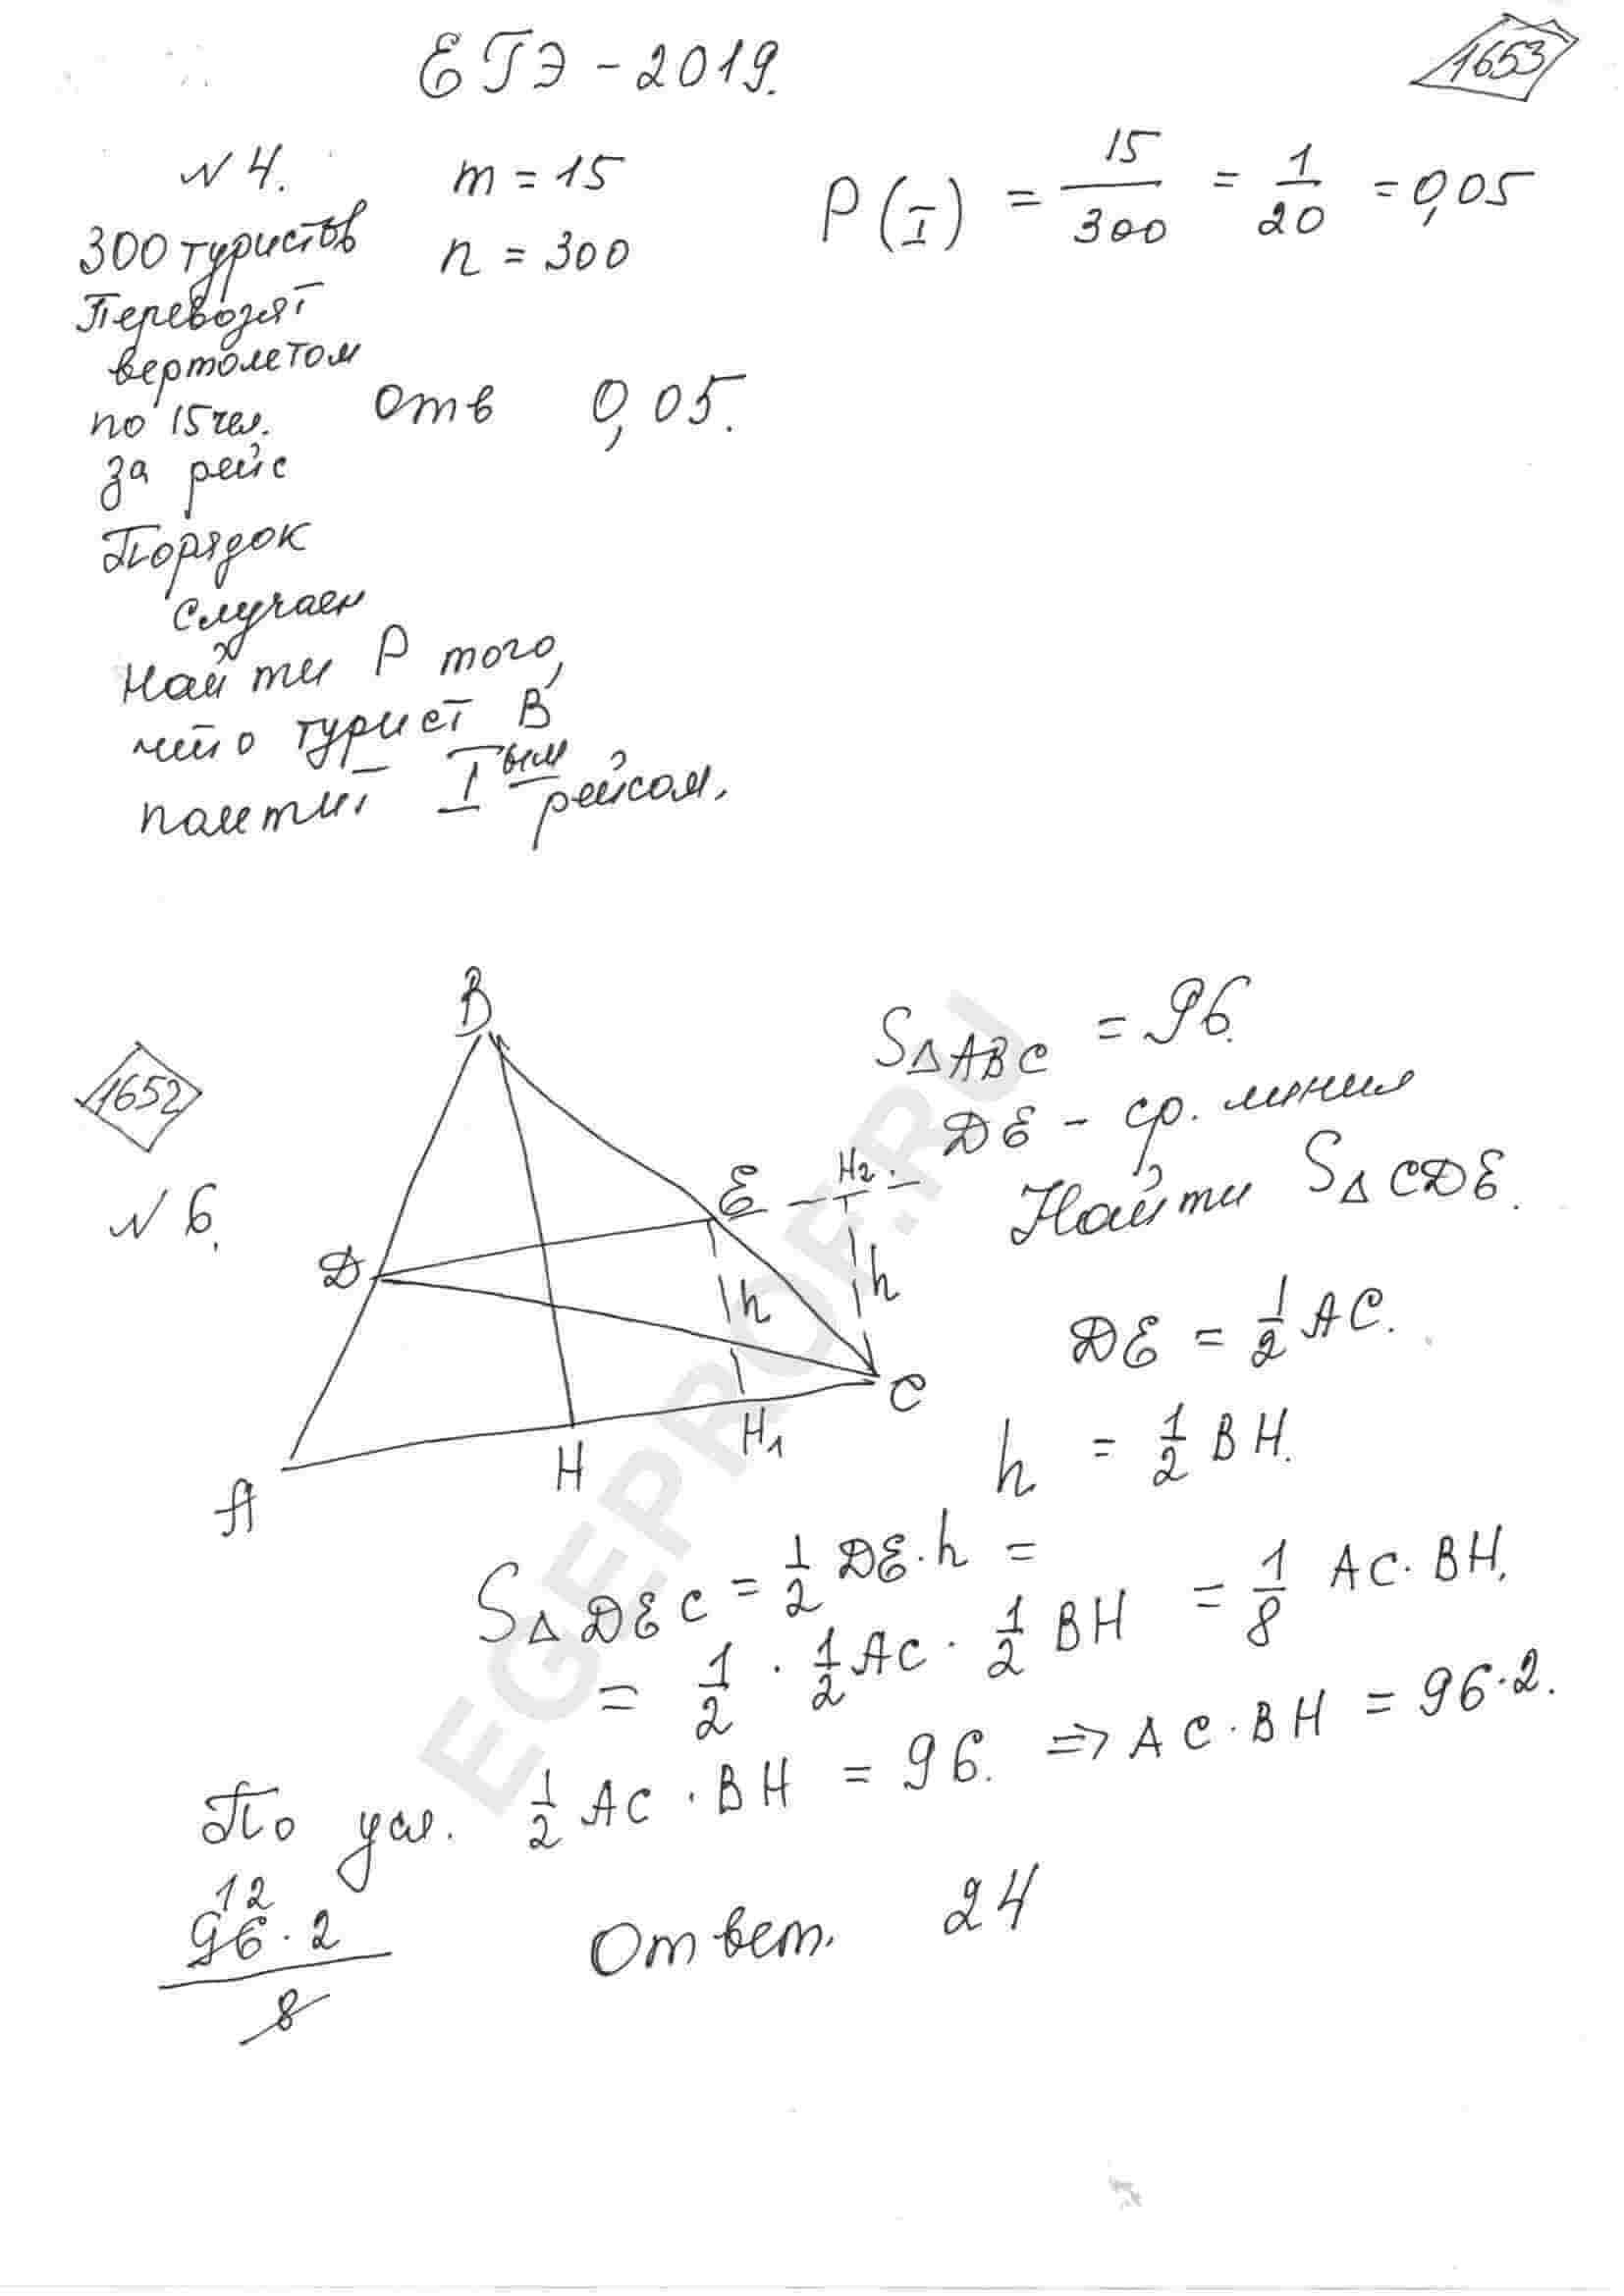 ЕГЭ - 2019.
1653
№ 4.
300 туристов
Перевозят
вертолетом
по 15 чел.
за рейс
Порядок
случаен
Найти P того,
что турист В
полетит I ым рейсом.
m = 15
n = 300
P(I) = 15/300 = 1/20 = 0,05
Отв 0,05.
1652
№ 6.
B
D
E
H2
h
h
C
H1
H
A
S△ABC = 96.
DE - ср. линия
Найти S△CDE.
DE = 1/2 AC.
h = 1/2 BH.
S△DEC = 1/2 DE · h =
= 1/2 · 1/2 AC · 1/2 BH = 1/8 AC · BH.
По усл. 1/2 AC · BH = 96. => AC · BH = 96 · 2.
12
96 · 2
8
Ответ. 24
EGEPROF.RU